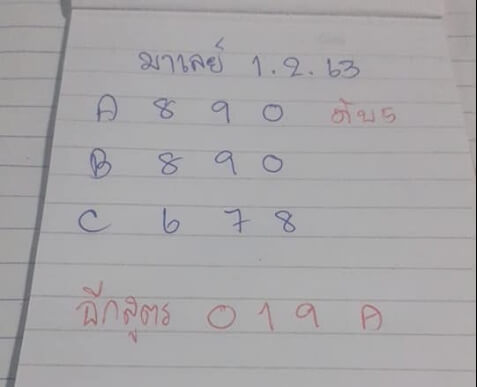 มาเลย์ 1.2.63
A 8 9 0 ดับ 5
B 8 9 0
C 6 7 8
อีกสูตร 0 1 9 A